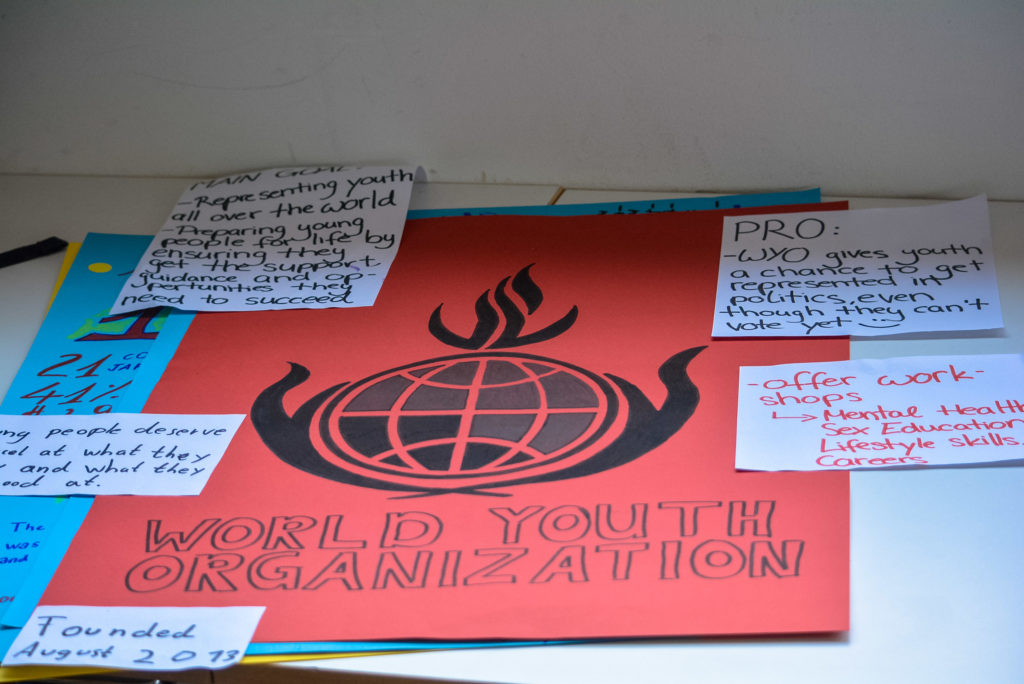 MAIN GOAL:
-Representing youth
all over the world
-Preparing young
people for life by
ensuring they
get the support,
guidance and op-
pertunities they
need to succeed
PRO:
-WYO gives youth
a chance to get
represented in
politics, even
though they can't
vote yet
-offer work-
shops
Mental Health
Sex Education
Lifestyle skills
Careers
21
41%
people deserve
at what they
and what they
at.
The
was
and
WORLD YOUTH
ORGANIZATION
Founded
August 2013